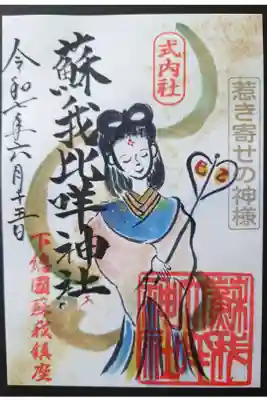 惹き寄せの神様
式内社
蘇我比咩神社
令和七年六月十五日
下総國蘇我鎮座